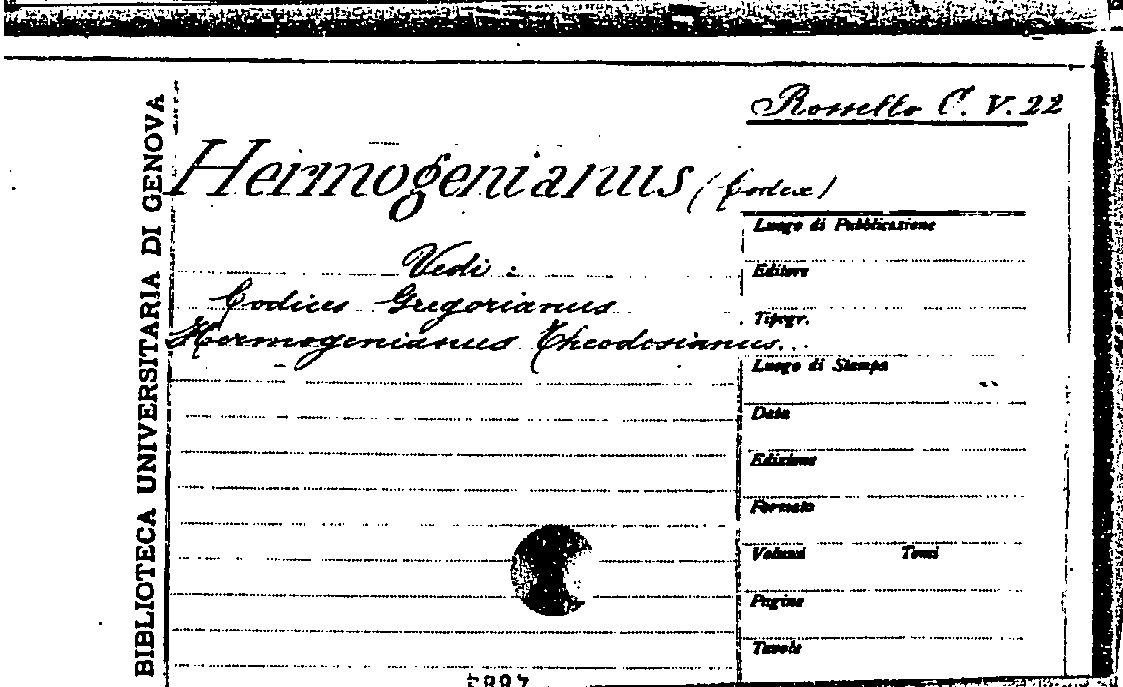 Rossello C. V. 22
BIBLIOTECA UNIVERSITARIA DI GENOVA
Hermogenianus (Codex)
Vedi :
Codices Gregorianus
Hermogenianus Theodosianus...
Luogo di Pubblicazione
Editore
Tipogr.
Luogo di Stampa
Data
Edizione
Formato
Volumi Tomi
Pagine
Tavole